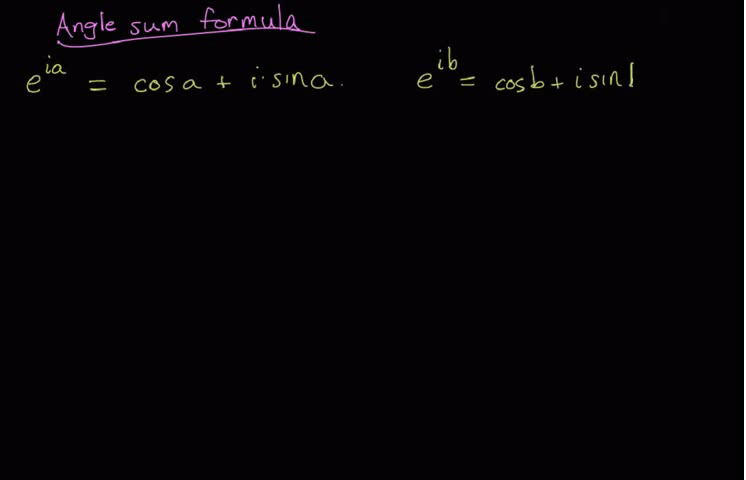 Angle sum formula
e^{ia} = cos a + i·sin a. e^{ib} = cos b + i sin